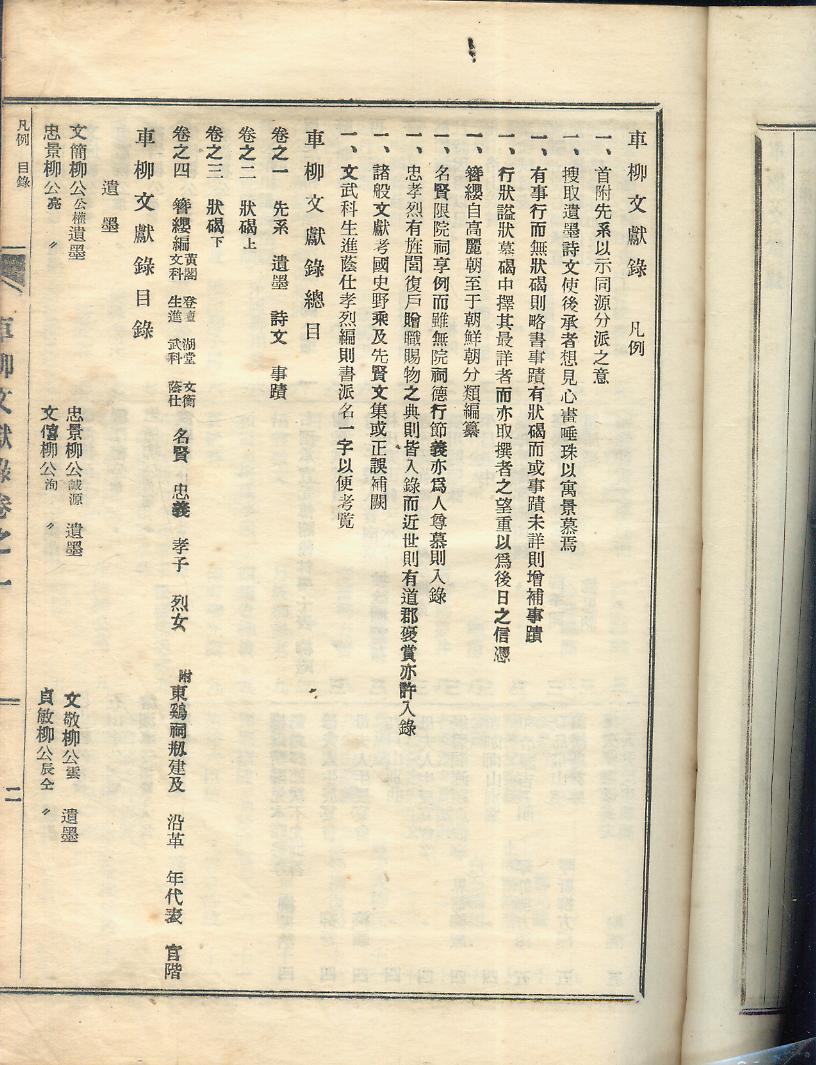 車柳文獻錄 凡例
一、首附先系以示同源分派之意
一、搜取遺墨詩文使後承者想見心畫唾珠以寓景慕焉
一、有事行而無狀碣則略書事蹟有狀碣而或事蹟未詳則增補事蹟
一、行狀諡狀墓碣中擇其最詳者而亦取撰者之望重以爲後日之信憑
一、簪纓自高麗朝至于朝鮮朝分類編纂
一、名賢限院祠享例而雖無院祠德行節義亦爲人尊慕則入錄
一、忠孝烈有旌閭復戶贈職賜物之典則皆入錄而近世則有道郡褒賞亦許入錄
一、諸般文獻考國史野乘及先賢文集或正誤補闕
一、文武科生進蔭仕孝烈編則書派名一字以便考覽
車柳文獻錄總目
卷之一 先系 遺墨 詩文 事蹟
卷之二 狀碣上
卷之三 狀碣下
卷之四 簪纓編 黃閣 文科 登壇 生進 湖堂 武科 文衡 蔭仕 名賢 忠義 孝子 烈女 附東鷄祠刱建及 沿革 年代表 官階
車柳文獻錄目錄
遺墨
文簡柳公公權遺墨 忠景柳公誠源 遺墨 文敬柳公雲 遺墨
忠景柳公亮 〃 文僖柳公洵 〃 貞敏柳公辰仝 〃
凡例 目錄
車柳文獻錄卷之一
二